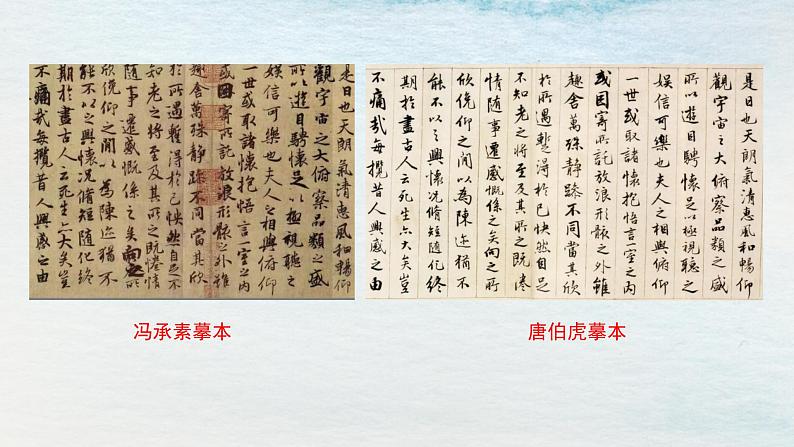 是日也天朗氣清惠風和暢仰
觀宇宙之大俯察品類之盛
所以遊目騁懷足以極視聽之
娛信可樂也夫人之相與俯仰
一世或取諸懷抱悟言一室之內
或因寄所託放浪形骸之外雖
趣舍萬殊靜躁不同當其欣
於所遇暫得於己怏然自足不
知老之將至及其所之既惓情
隨事遷感慨係之矣向之所
欣俛仰之間以為陳迹猶不
能不以之興懷況脩短隨化終
期於盡古人云死生亦大矣豈
不痛哉每攬昔人興感之由
冯承素摹本
是日也天朗氣清惠風和暢仰
觀宇宙之大俯察品類之盛
所以遊目騁懷足以極視聽之
娛信可樂也夫人之相與俯仰
一世或取諸懷抱悟言一室之內
或因寄所託放浪形骸之外雖
趣舍萬殊靜躁不同當其欣
於所遇暫得於己快然自足
不知老之將至及其所之既惓
情隨事遷感慨係之矣向之所
欣俛仰之間以為陳迹猶不
能不以之興懷況脩短隨化終
期於盡古人云死生亦大矣豈
不痛哉每攬昔人興感之由
唐伯虎摹本